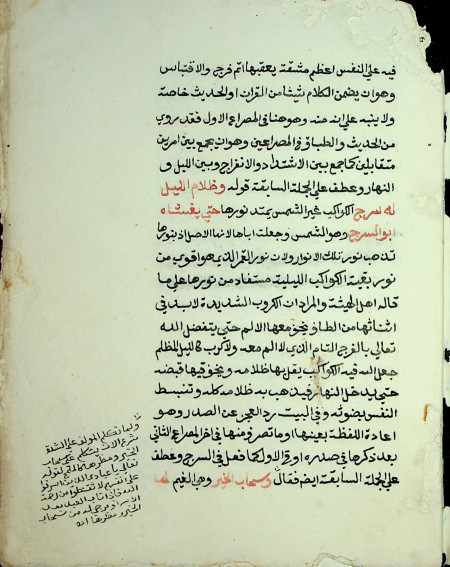 فيه على النفس اعظم مشقة يعقبها اتم فرج والاقتباس
وهو ان يضمن الكلام شيئا من القران او الحديث خاصة
ولا ينبه على انه منه وهو هنا في المصراع الاول فقد روي
من الحديث والطباق في المصراعين وهو ان يجمع بين امرين
متقابلين كما جمع بين الاشتداد والانفراج وبين الليل و
النهار وعطف على الجملة السابقة قوله وظلام الليل
له سرج الكواكب غير الشمس يمتد نورها حتى يغشاه
ابو السرج وهو الشمس وجعلت اباها لانها الاصل اذ بنورها
تذهب نور تلك الانوار ولان نور القمر الذي هو اقوى من
نور بقية الكواكب الليلية مستفاد من نورها على ما
قاله اهل الهيئة والمراد ان الكروب الشديدة لا بد في
اثنائها من الطاف يخف معها الالم حتى يتفضل الله
تعالى بالفرج التام الذي لا الم معه ولا كرب كالليل المظلم
جعل الله فيه الكواكب يقل بها ظلامه ويخف فيها قبضه
حتى يدخل النهار فيذهب به ظلامه كله وتنبسط
النفس بضوئه وفي البيت رد العجز عن الصدر وهو
اعادة اللفظة بعينها او ما تصرف منها في اخر المصراع الثاني
بعد ذكرها في صدره او في الاول كما فعل في السرج وعطف
على الجملة السابقة ايضا فقال وسحاب الخير وهو الغيم لها
ولما تكلم المولف على الشدة
شرع الان يتكلم على سحاب
الخير ومطرها
تعالى يا عبادي الذين اسرفوا
على انفسهم لا تقنطوا من رحمة
الله
الخير ومطرها انه